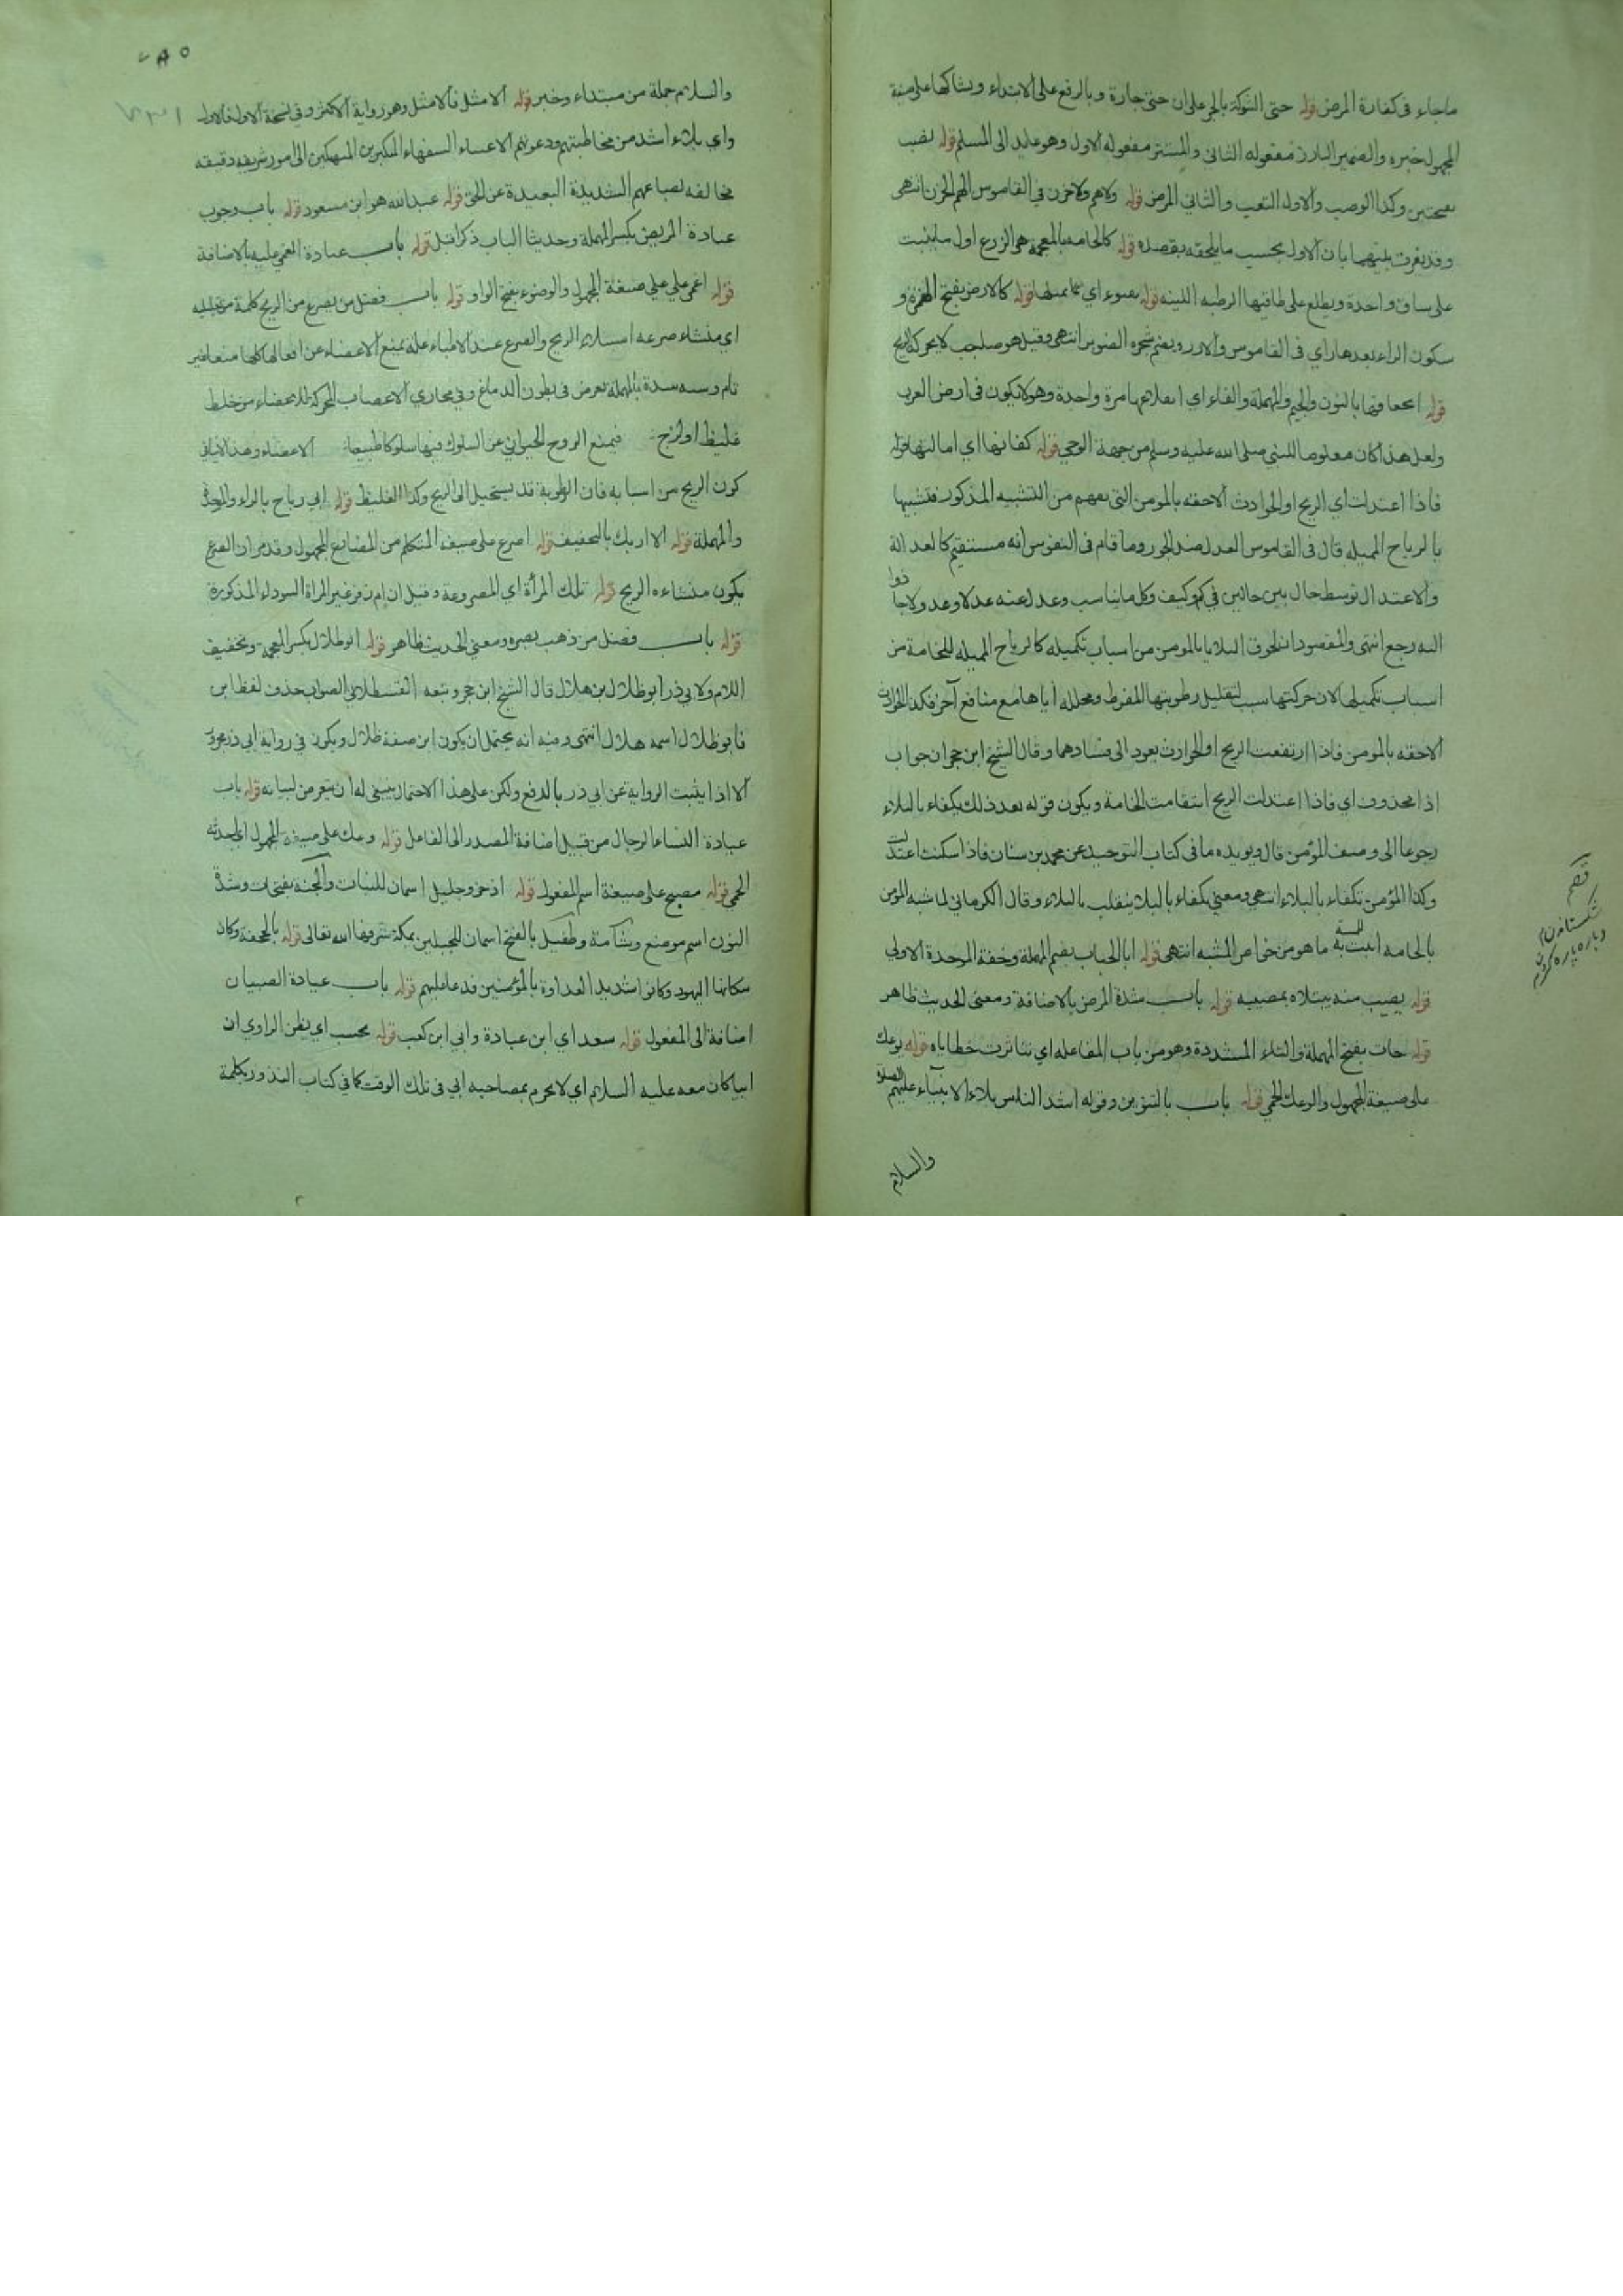 ماجاء في كفارة المرض قوله حتى الشوكة بالجر على ان حتى جارة وبالرفع على الابتداء ويشاكها على صيغة
المجهول خبره والضمير البارز مفعوله الثاني والمستتر مفعوله الاول وهو عايد الى المسلم قوله نصب
بفتحتين وكذا الوصب والاول التعب والثاني المرض قوله ولا هم ولا حزن في القاموس الهم الحزن انتهى
وقد يفرق بينهما بان الاول بحسب ما يلحقه بقصده قوله كالخامه بالمعجمه هو الزرع اول ما ينبت
على ساق واحدة ويطلع على طاقتها الرطبه اللينه قوله اي يميلها قوله كالارز بفتح الهمزة و
سكون الراء بعدها زاي في القاموس والارز ويضم شجره الصنوبر انتهى وقيل هو صلب لا يحركه الريح
قوله انجعافها بالنون والجيم والمهملة والفاء اي انقلاعها مرة واحدة وهو لا يكون في ارض العرب
ولعل هذا كان معلوما للنبي صلى الله عليه وسلم من جهة الوحي قوله كفاتها اي امالتها قوله
فاذا اعتدلت اي الريح او الحوادث الاحقه بالمومن التي تفهم من التشبيه المذكور فتشبيها
بالرياح المميله قال في القاموس العدل ضد الجور وما قام في النفوس انه مستقيم كالعدالة
والاعتدال توسط حال بين حالين في كم وكيف وكل ما تناسب وعدل عنه عدلا وعدولا جا
اليه رجع انتهى والمقصود ان لحوق البلايا بالمومن من اسباب تكميله كالرياح المميله للخامة من
اسباب تكميلها لان حركتها سبب لتقليل رطوبتها المفرط ومحلله اياها مع منافع آخر فكذا الحوادث
الاحقه بالمومن فاذا ارتفعت الريح او الحوادث يعود الى فسادهما وقال الشيخ ابن حجر ان جواب
اذا محذوف اي فاذا اعتدلت الريح استقامت الخامة ويكون قوله بعد ذلك يكفاء بالبلاء
رجوعا الى وصف المؤمن قال ويويده ما في كتاب التوحيد عن محمد بن سنان فاذا سكنت اعتدلت
وكذا المؤمن تكفاء بالبلاء انتهى ومعنى يكفاء بالبلاء ينقلب بالبلاء وقال الكرماني لما شبه المؤمن
بالخامه اثبت للمشبه به ما هو من خواص المشبه انتهى قوله ابا الحباب بضم المهملة وخفة الموحدة الاولي
قوله يصب منه يبتلاه بمصيبه قوله باب شدة المرض بالاضافة ومعنى الحديث ظاهر
قوله حات بفتح المهملة والتاء المشددة وهو من باب المفاعله اي تناثرت خطاياه قوله يوعك
على صيغة المجهول والوعك الحمي قوله باب بالتنوين وقوله اشد الناس بلاء الانبياء عليهم الصلوة
والسلام
قصم
شكستاندن
وپاره پاره كردن
والسلام جملة من مبتداء وخبر قوله الامثل فالامثل وهو رواية الاكثر وفي نسخة الاول فالاول
واي بلاء اشد من مخاطبتهم ودعوتهم السفهاء المتكبرين المنهمكين الى امور شريفه دقيقه
مخالفه لطباعهم الشديدة البعيدة عن الحق قوله عبد الله هو ابن مسعود قوله باب وجوب
عيادة المريض بكسر المهملة وحديثا الباب ذكرا قبل قوله باب عيادة المغمي عليه بالاضافة
قوله اغمي علي على صيغة المجهول والوضوء بفتح الواو قوله باب فضل من يصرع من الريح كلمة من تعليليه
اي منشاء صرعه الريح والصرع عند الاطباء علة يمنع الاعضاء عن افعالها كلها منعا غير
تام وسببه سدة بالمهملة تعرض في بطون الدماغ وفي مجاري الاعصاب المحركة للاعضاء من خلط
غليظ او لزج فيمنع الروح الحيواني عن السلوك فيها سلوكا طبيعيا الاعضاء وهذا لا ينافي
كون الريح من اسبابه فان الرطوبة قد يستحيل الى الريح وكذا الغليظ قوله ابي رباح بالراء والموحدة
والمهملة قوله الا اريك بالتخفيف قوله اصرع على صيغة المتكلم من المضارع المجهول وقد مر ان الصرع
يكون منشاءه الريح قوله تلك المرأة اي المصروعة وقيل ان ام زفر غير المراة السوداء المذكورة
قوله باب فضل من ذهب بصره ومعنى الحديث ظاهر قوله ابو ظلال بكسر المعجمة وتخفيف
اللام ولابي ذر ابو ظلال بن هلال قال الشيخ ابن حجر وتبعه القسطلاني الصواب حذف لفظ ابن
فابو ظلال اسمه هلال انتهى وفيه انه يحتمل ان يكون ابن صفة ظلال ويكون في رواية ابي ذر مجرور
الا اذا يثبت الرواية عن ابي ذر بالرفع ولكن على هذا الاحتمال ينبغي له ان يتعرض لبيانه قوله باب
عيادة النساء الرجال من قبيل اضافة المصدر الى الفاعل قوله وعك على صيغة المجهول اي اخذته
الحمي قوله مصبح على صيغة اسم المفعول قوله اذخر وجليل اسمان للنبات والمجنة بفتحات وشدة
النون اسم موضع وشامة وطفيل بالفتح اسمان للجبلين بمكة شرفها الله تعالى قوله بالجحفة وكان
سكانها اليهود وكانوا شديد العداوة بالمؤمنين فدعا عليهم قوله باب عيادة الصبيان
اضافة الى المفعول قوله سعد اي ابن عبادة وابي ابن كعب قوله نحسب اي يظن الراوي ان
ابيا كان معه عليه السلام اي لا يجزم بمصاحبه ابي في تلك الوقت كما في كتاب النذور بكلمة